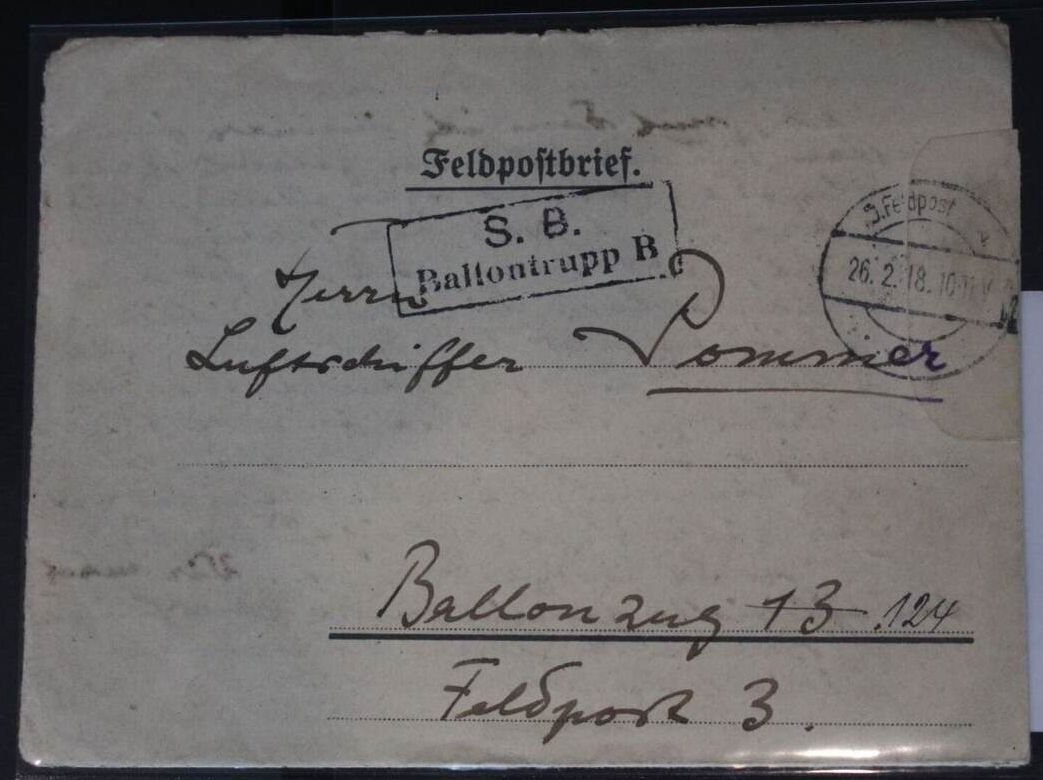 Feldpostbrief.
S. B.
Ballontrupp B
K.D.Feldpost
26.2.18.10-11V
Herrn
Luftschiffer Pommer
Ballonzug 13 124
Feldpost 3.